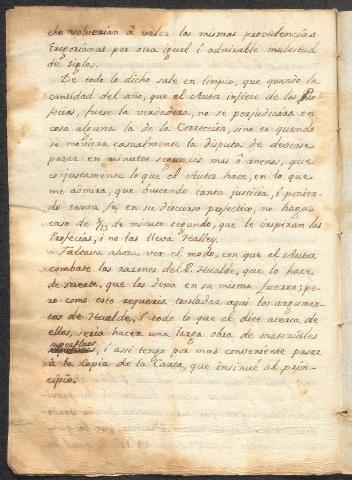 cho volverian à valer las mismas providencias
Gregorianas por otra igual i admirable multitud
de siglos.
De todo lo dicho sale en limpio, que quando la
cantidad del año, que el Autor infiere de las Pro
fecias, fuese la verdadera, no se perjudicára en
cosa alguna la de la Correccion, sino es quando
se moviera casualmente la disputa de deverse
parar en minutos segundos mas ò menos, que
es justamente lo que el Autor hace, en lo que
me admira, que buscando tanta justicia, i ponien-
do tanta fe, en su discurso profectico, no haga
caso de 9/13 de minuto segundo, que le inspiran las
Profecias, i no las lleva Halley.
Faltava ahora ver el modo, con que el Autor
combate las razones del P. Hualde, que lo hace
de suerte, que las dexa en su misma fuerza; pe-
ro como esto requeria trasladar aqui los argumen-
tos de Hualde, i todo lo que el dice acerca de
ellos, seria hacer una larga obra de materiales
superfluos
, i assi tengo por mas conveniente pasar
à la Copia de la Carta, que insinué al prin-
cipio.